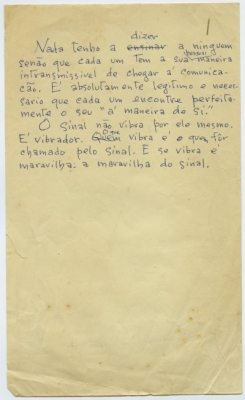 1
dizer
Nada tenho a ensinar a ninguém
senão que cada um tem a sua maneira
intransmissível de chegar à comunica-
cão. É absolutamente legítimo e neces-
sario que cada um encontre perfeita-
mente o seu "à maneira de si."
O sinal não vibra por ele mesmo.
É vibrador. Quem o que vibra é o que fôr
chamado pelo sinal. E se vibra é
maravilha: a maravilha do sinal.